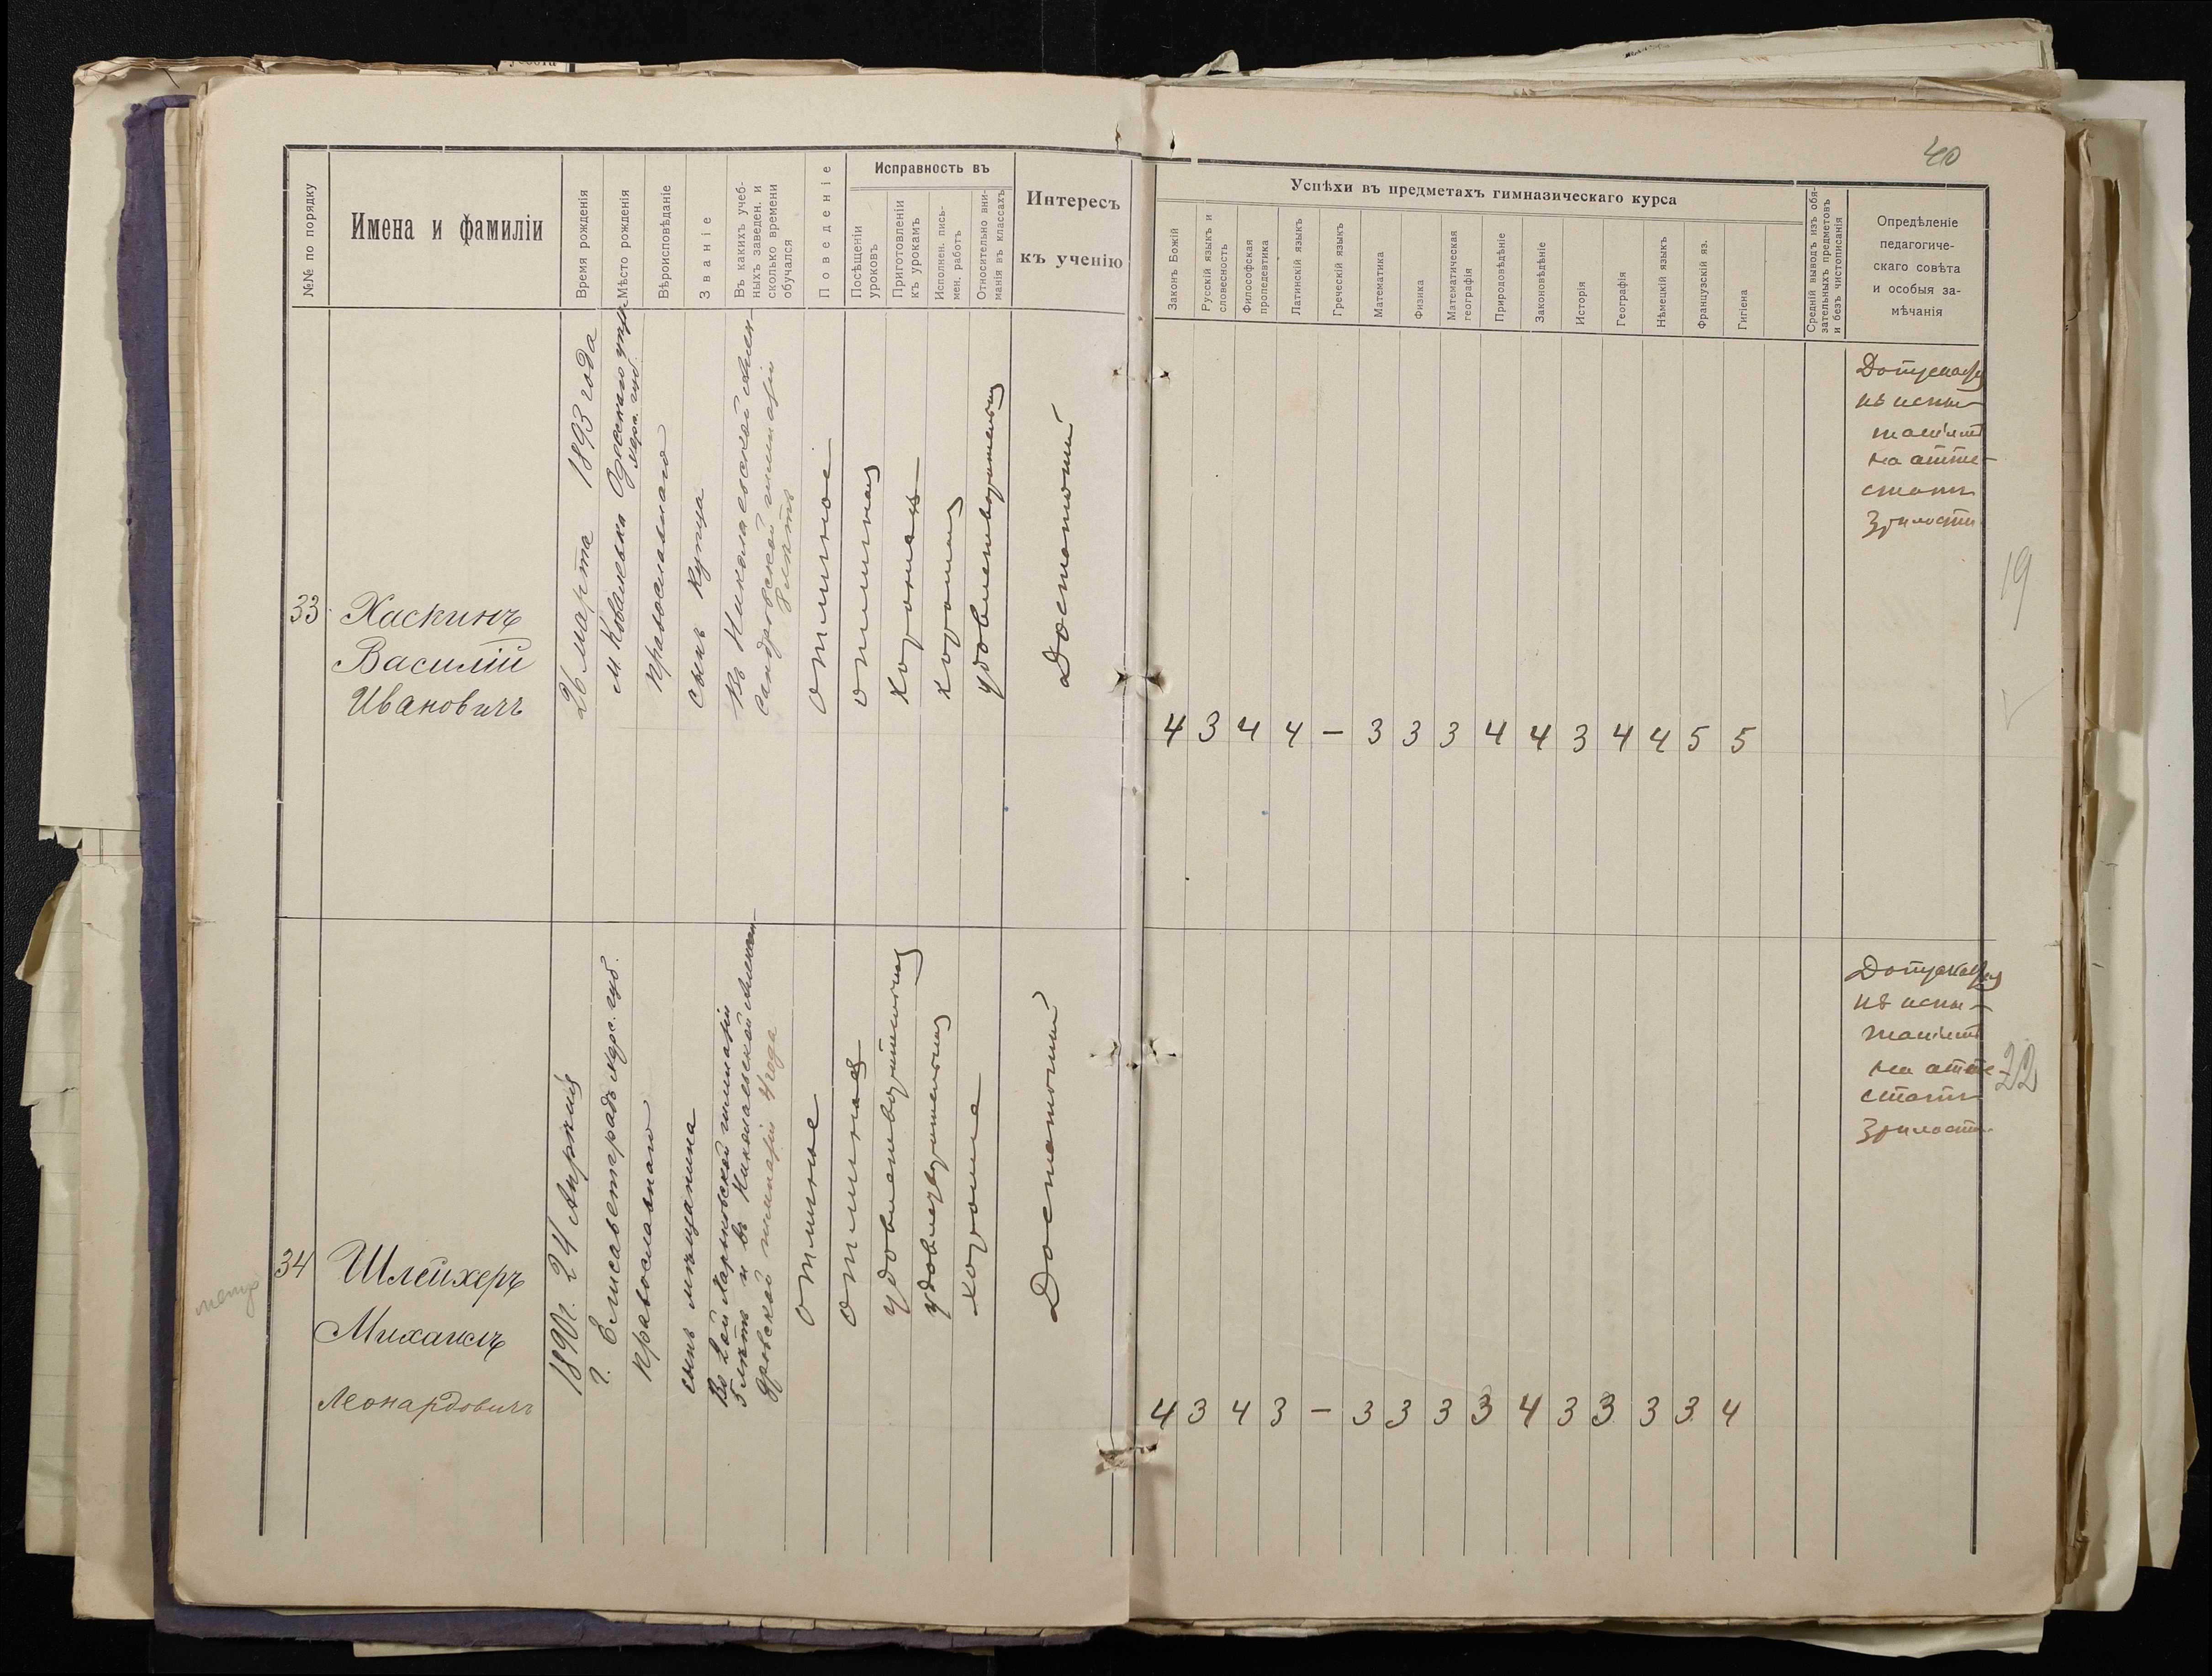 40
№№ по порядку
Имена и фамиліи
Время рожденія
Мѣсто рожденія
Вѣроисповѣданіе
Званіе
Въ какихъ учеб-
ныхъ заведен. и
сколько времени
обучался
Поведеніе
Исправность въ
Посѣщеніи
уроковъ
Приготовленіи
къ урокамъ
Исполнен. пись-
мен. работъ
Относительно вни-
манія въ классахъ
Интересъ
къ ученію
Успѣхи въ предметахъ гимназическаго курса
Законъ Божій
Русскій языкъ и
словесность
Философская
пропедевтика
Латинскій языкъ
Греческій языкъ
Математика
Физика
Математическая
географія
Природовѣдѣніе
Законовѣдѣніе
Исторія
Географія
Нѣмецкій языкъ
Французскій яз.
Гигіена
Средній выводъ изъ обя-
зательныхъ предметовъ
и безъ чистописанія
Опредѣленіе
педагогиче-
скаго совѣта
и особыя за-
мѣчанія
33
Хаскинъ
Василій
Ивановичъ
26 марта 1893 года
м. Ковалевка Одесскаго уѣзда
Херс. губ.
Православнаго
сынъ купца
Въ Николаевской Алек-
сандровской гимназіи
8 лѣтъ
отличное
отличная
хорошая
хорошая
удовлетворительная
Достаточный
4 3 4 4 — 3 3 3 4 4 3 4 4 5 5
Допускается
къ испы-
таніямъ
на атте-
статъ
зрѣлости
19
34
Шлейхеръ
Михаилъ
Леонардовичъ
1890 г. 24 Апрѣля
г. Елисаветградъ Херс. губ.
Православнаго
сынъ мѣщанина
Во 2ой Харьковской гимназіи
5 лѣтъ и въ Николаевской Алексан-
дровской гимназіи 4 года
отличное
отличная
удовлетворительная
удовлетворительная
хорошее
Достаточный
4 3 4 3 — 3 3 3 3 4 3 3 3 3 4
Допускается
къ испы-
таніямъ
на атте-
статъ
зрѣлости
22